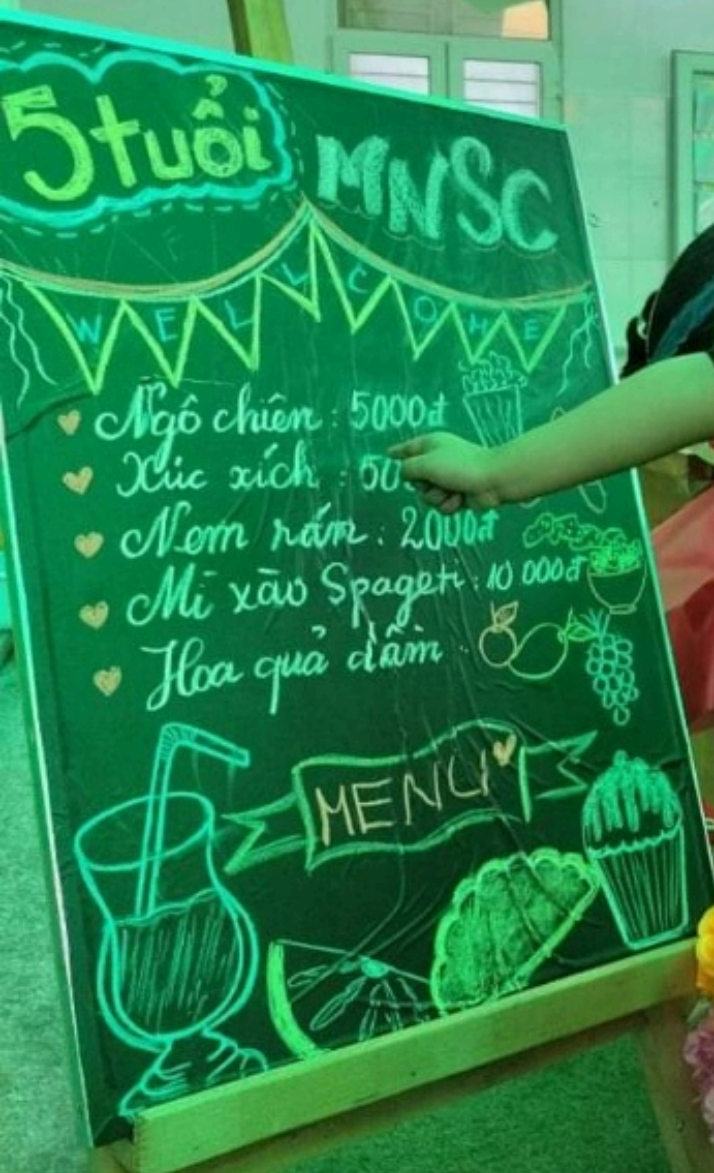 5 tuổi
MNSC
WELLCOME
Ngô chiên : 5000đ
Xúc xích : 50
Nem rán : 2000đ
Mì xào Spageti : 10 000đ
Hoa quả dầm :
MENU